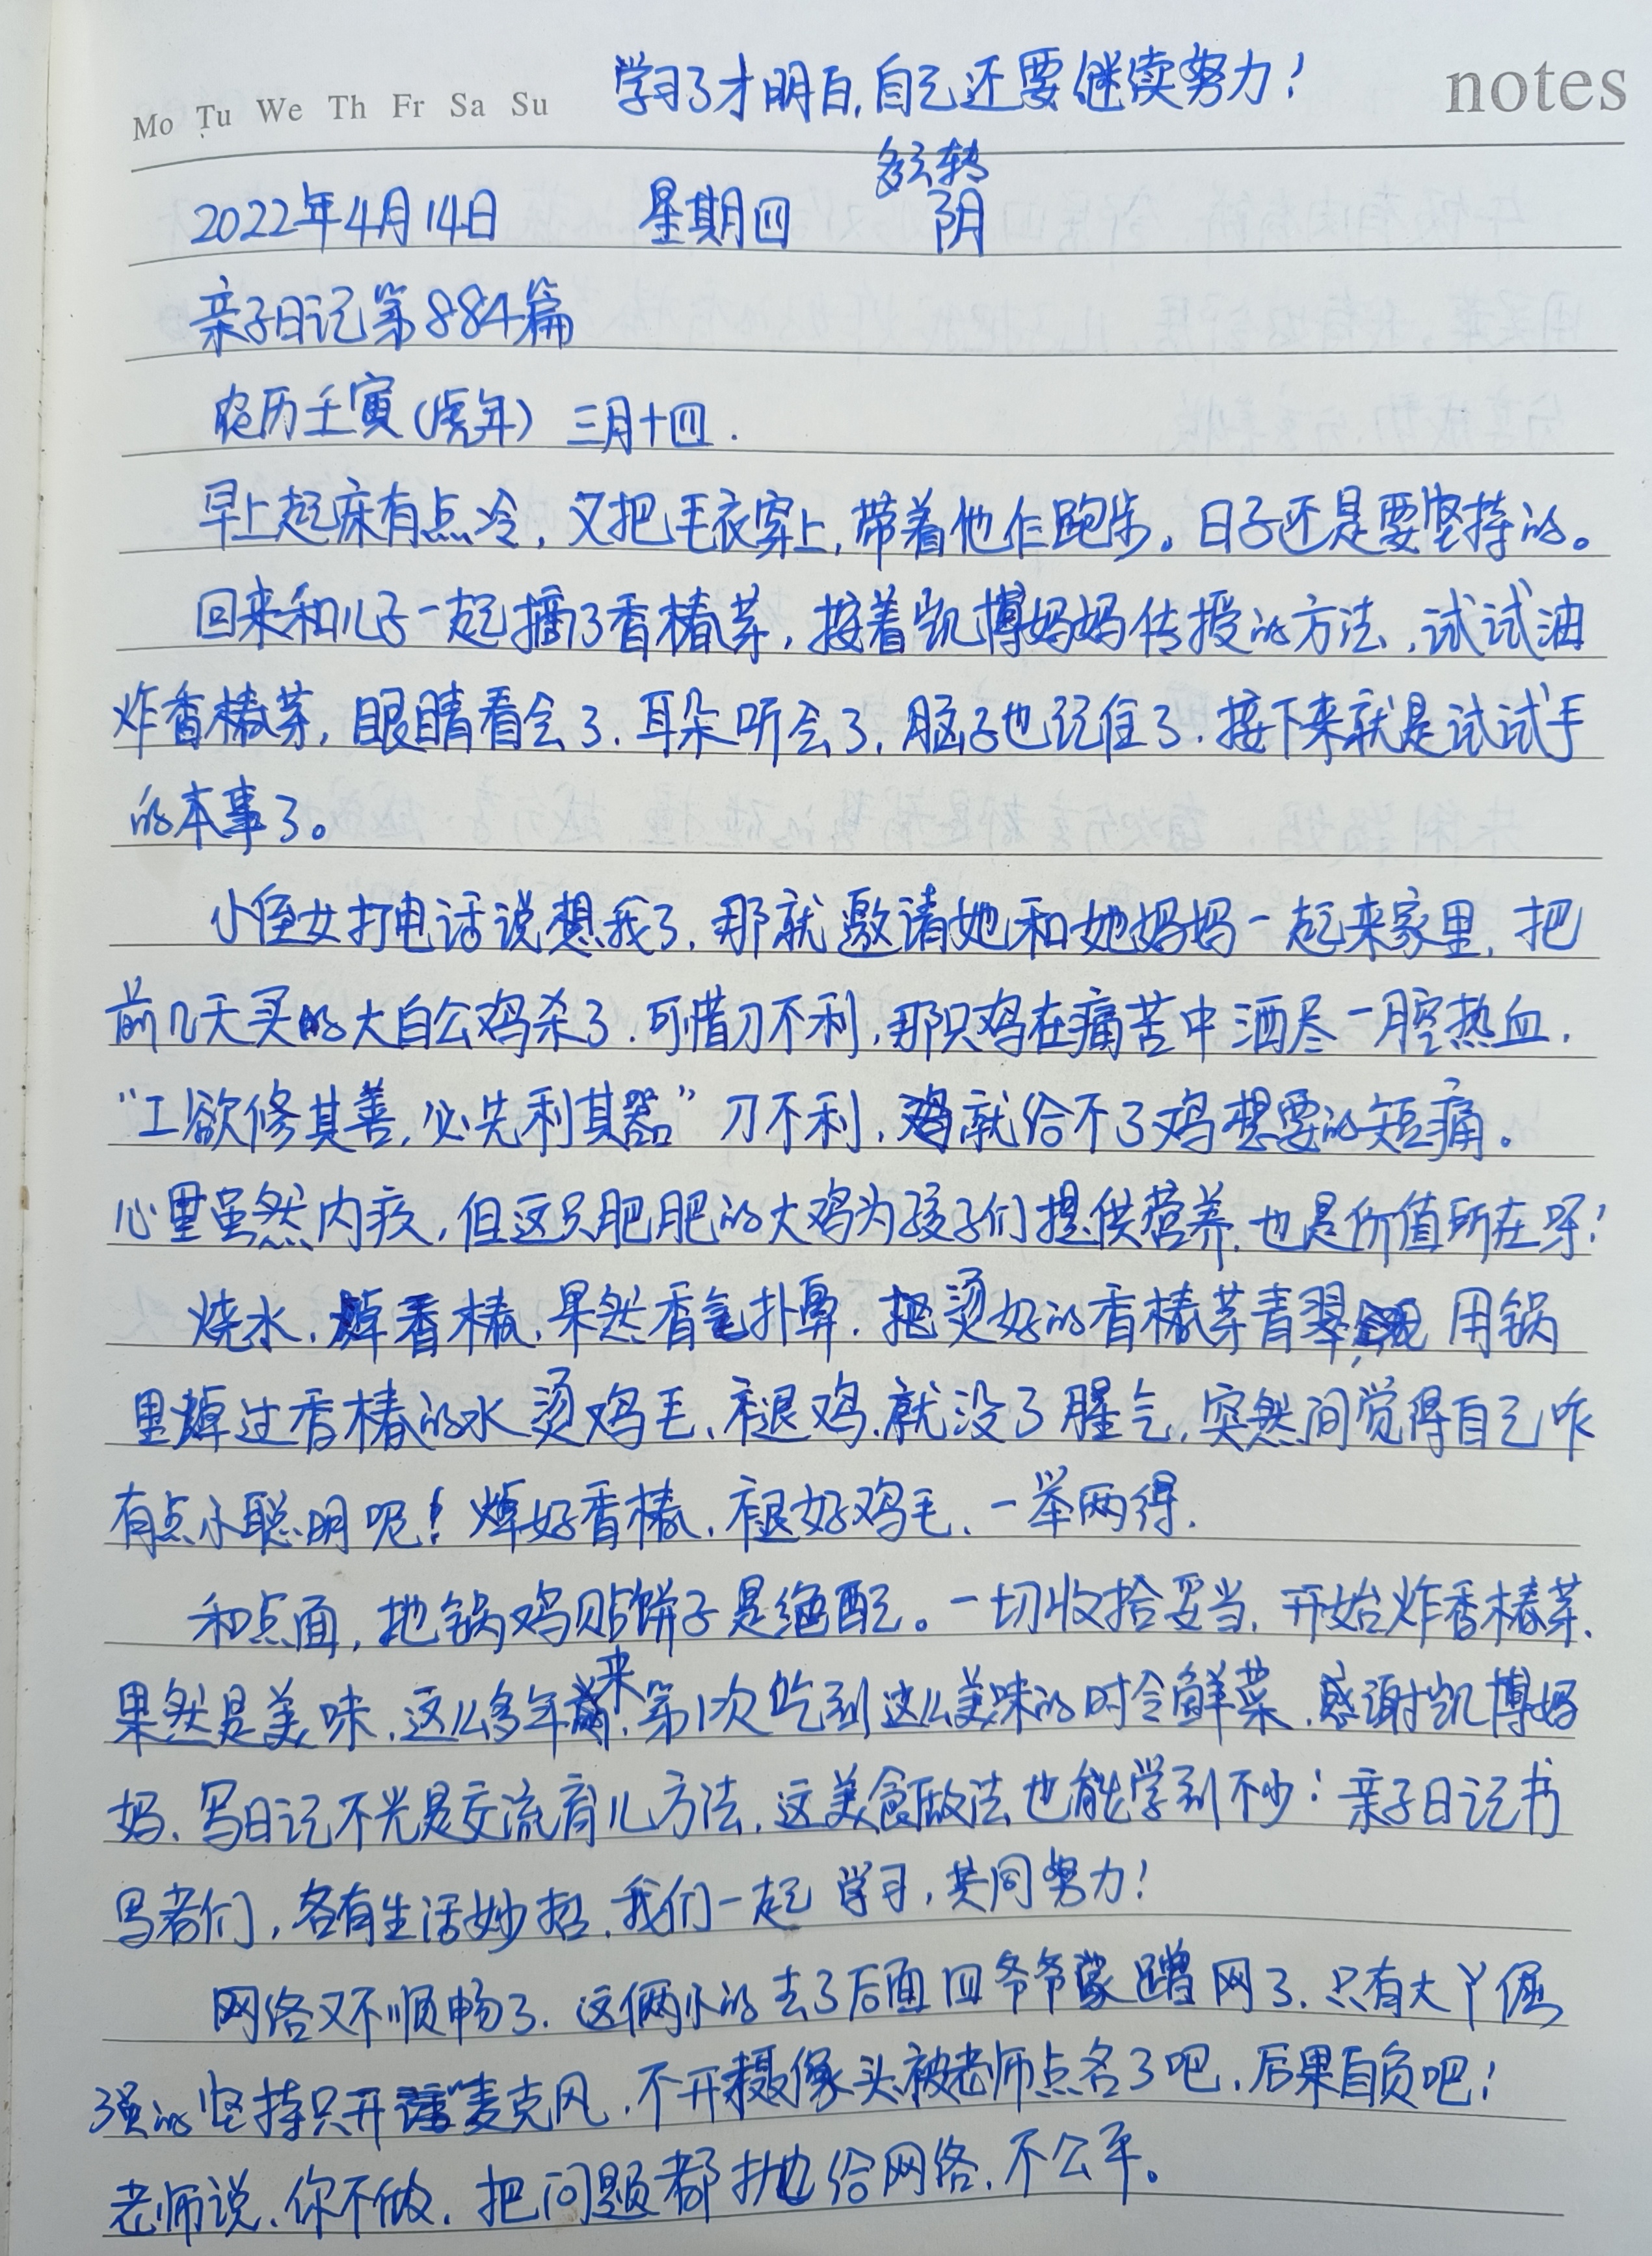 学习了才明白,自己还要继续努力!
notes
Mo Tu We Th Fr Sa Su
多云转
2022年4月14日 星期四 阴
亲子日记第884篇
农历壬寅(虎年) 三月十四.
早上起床有点冷,又把毛衣穿上,带着他仨跑步。日子还是要坚持的。
回来和儿子一起摘了香椿芽,接着凯博妈妈传授的方法,试试油
炸香椿芽,眼睛看会了.耳朵听会了,脑子也记住了.接下来就是试试手
的本事了。
小侄女打电话说想我了,那就邀请她和她妈妈一起来家里,把
前几天买的大白公鸡杀了.可惜刀不利,那只鸡在痛苦中洒尽一腔热血.
“工欲修其善,必先利其器”刀不利,就给不了鸡想要的短痛。
心里虽然内疚,但这只肥肥的大鸡为孩子们提供营养,也是价值所在呀!
烧水,焯香椿,果然香气扑鼻.把烫好的香椿芽青翠,用锅
里焯过香椿的水烫鸡毛,褪鸡,就没了腥气,突然间觉得自己咋
有点小聪明呢!焯好香椿,褪好鸡毛,一举两得.
和点面,地锅鸡贴饼子是绝配。一切收拾妥当,开始炸香椿芽.
果然是美味,这么多年来,第1次吃到这么美味的时令鲜菜.感谢凯博妈
妈、写日记不光是交流育儿方法,这美食做法也能学到不少!亲子日记书
写者们,各有生活妙招,我们一起学习,共同努力!
网络又不顺畅了.这俩小的去了后面四爷爷家蹭网了.只有大丫倔
强的坚持只开麦克风,不开摄像头被老师点名了吧,后果自负吧!
老师说,你不做,把问题都抛给网络,不公平。